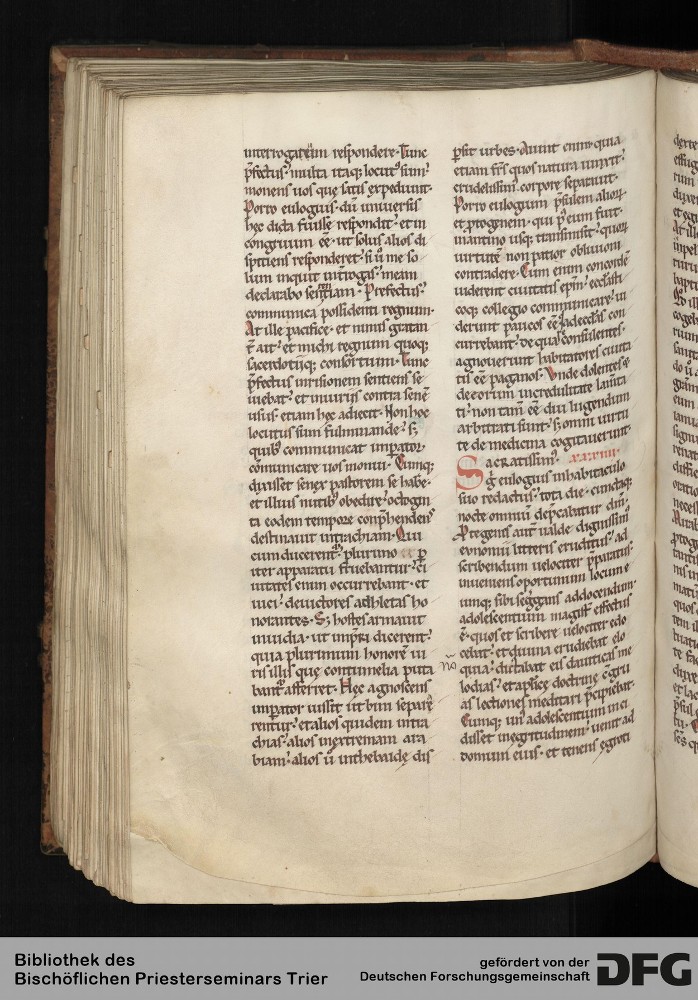 interrogatẽum respondere. Tunc
p̄fectus. multa itaq; locut᷒ sum᷒
monens uos que satis expediunt.
Porro eulogius. dū uniuersis
hęc dicta fuisse respondit. et in
congruum eē. ut solus alios di
spiciens responderet. si ū me so
lum inquit int̄rogas. meam
declarabo sententiam. Prefectus.
communica possidenti regnum.
At ille pacifice. et nimis gratan
t̄ ait. et michi regnum quoq;
sacerdotiiq; consortium. Tunc
p̄fectus inrisionem sentiens se
uiebat. et iniuriis contra senē
usus. etiam hęc adiecit. Non hoc
locutus sum fulminande. s;
quib᷒ communicat imp̄ator.
cōmunicare uos monui. Cumq;
dixisset senex pastorem se habe
et illius nutib᷒ obedire. octogin
ta eodem tempore conp̄hendens
destinauit intrachiam. Qui
cum ducerent᷒. plurimo p̱
iter apparatu fruebantur. ci
uitates enim occurrebant. et
uici. deuictores adhletas ho
norantes. S; hostes armauit
inuidia. ut imp̄ri dicerent.
quia plurimum honorē ui
ris illis que contumelia puta
bant᷒ afferret. Hęc agnoscens
imp̱ator iussit ut bini separē
rentur. et alios quidem intra
chias. alios inextremam ara
biam. alios ū inthebaidę dis
p̱sit urbes. Aiunt enim quia
etiam frs̄ quos natura iunxit.
crudelissimi corpore separauit.
Porro eulogium p̄sulem alior᷒.
et protogenem. qui p᷒ eum fuit.
mantino usq; transmisit. quor᷒
uirtutē non patior obliuioni
contradere. Cum enim concordē
uiderent ciuitatis ep̄m. ecclasti
coq; collegio communicare. ui
derunt paucos eē. adecclas̄ con
currebant. de qua consulentes.
agnouerunt habitatores ciuita
tis eē paganos. Unde dolentes
deeorum incredulitate lam̄ta
ti. non tam eē diu lugendum
arbitrati sunt. s; omni uirtu
te de medicina cogitauerunt.
Sacratissim᷒. xxxviiii.
g̊ eulogius inhabitaculo
suo redactus. tota die. cunctaq;
nocte omnium dep̄cabatur dn̄m.
Protegens aut̄ ualde dignissim᷒
eunomii litteris eruditus. ad
scribendum uelociter p̄paratus.
inueniens oportunum locum.
addocendum.
adolescentium magist᷒ effectus
ē. quos et scribere uelociter edo
cebat. et diuina erudiebat elo
quia. dictabat eis dauiticas me
lodias. et apl̄icę doctrinę cgru
as lectiones meditari p̄cipiebat.
Cumq; un᷒ adolescentium inci
disset inęgritudinem. uenit ad
domum eius. et tenens ęgroti
Bibliothek des
Bischöflichen Priesterseminars Trier
gefördert von der
Deutschen Forschungsgemeinschaft
DFG